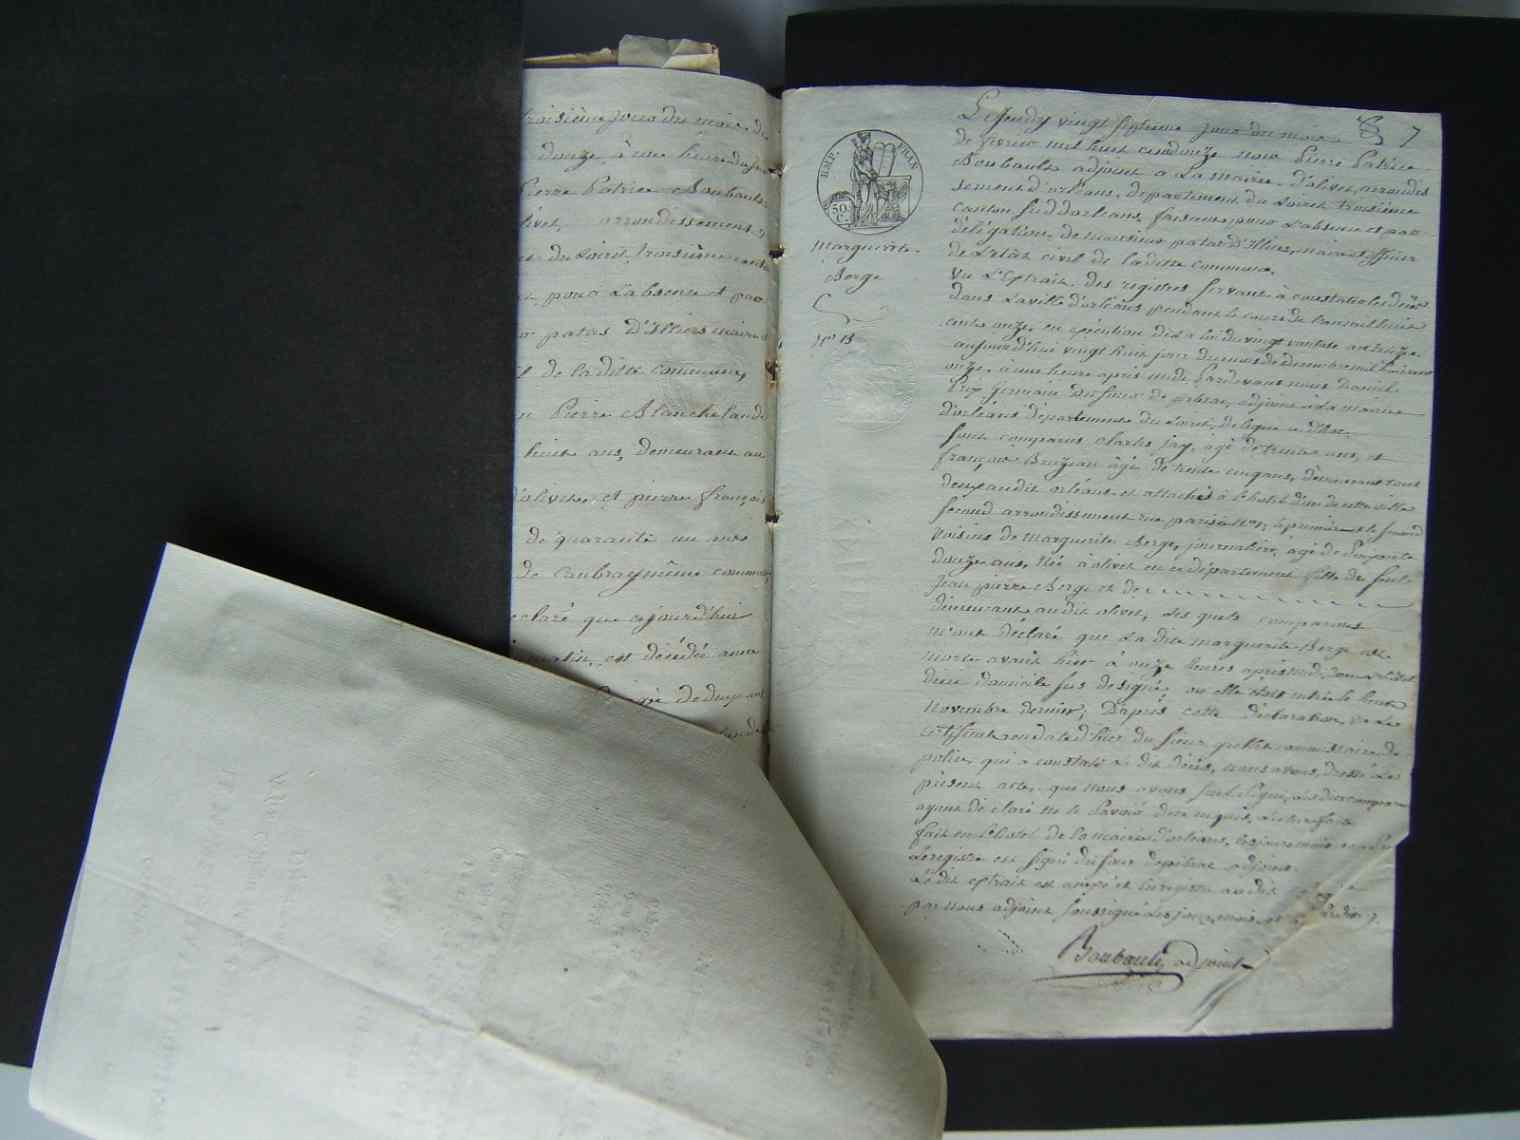 troisième jour du mois de
douze à une heure du
Pierre Patrice Boubault
olivet, arrondissement
du Loiret, troisième canton
pour l'absence et par
patas d'Illiers maire
de la ditte commune,
Pierre Blanchelande
huit ans, demeurant au
d'olivet, et pierre françois
de quarante un ans
de caubray même commune
declaré que cejourd'hui
matin, est décédée anne
agée de deux ans
IMP. FRAN
50 C.
Marguerite
Berge
n° 13
7
Le Jeudy vingt septieme jour du mois
de fevrier mil huit cent douze nous Pierre Patrice
Boubault adjoint a La mairie d'olivet, arrondis
sement d'orléans, departement du Loiret troisième
canton sud d'orleans, faisant pour L'absence et par
délégation de monsieur patas d'Illiers, maire et officier
de L'etat civil de la ditte commune.
Vu L'Extrait des registres servant à constater les décès
dans La ville d'orléans pendant le cours de L'an mil huit
cent onze, en exécution de La loi du vingt ventose an onze.
aujourd'hui vingt huit jour du mois de decembre mil huit cent
onze, à une heure après midi, Pardevant nous Daniel
germain adjoint à La mairie
d'orléans département du Loiret, delegué
sont comparus charles jay, agé de trente ans, et
françois Bruzeau âgé de trente cinq ans, demeurant tous
deux audit orléans et attachés à l'hotel dieu de cette ville
second arrondissement rue parisie n° 1, le premier et le second
voisins de marguerite Berge, journalière, âgée de soixante
douze ans, Née à olivet en ce département fille de feu
Jean pierre Berge et de
demeurant audit olivet, Les quels comparans
m'ont déclaré que La dite marguerite Berge est
morte avant hier à onze heures après midi, dans
domicile sus designé, ou elle était entrée le trente
Novembre dernier; D'après cette déclaration et Le
certificat en date d'hier du sieur quillet commissaire de
police, qui a constaté Le dit décès, nous avons dressé Le
présent acte, que nous avons seul signé, Les dits comparans
ayant declaré ne le savoir de ce requis, Lecture faite
fait en l'hotel de la mairie d'orleans, les jour mois et an
Le registre est signé du sieur adjoint.
Le dit extrait est annexé et enregistré audit
par nous adjoint soussigné Les jour, mois et
Boubault adjoint